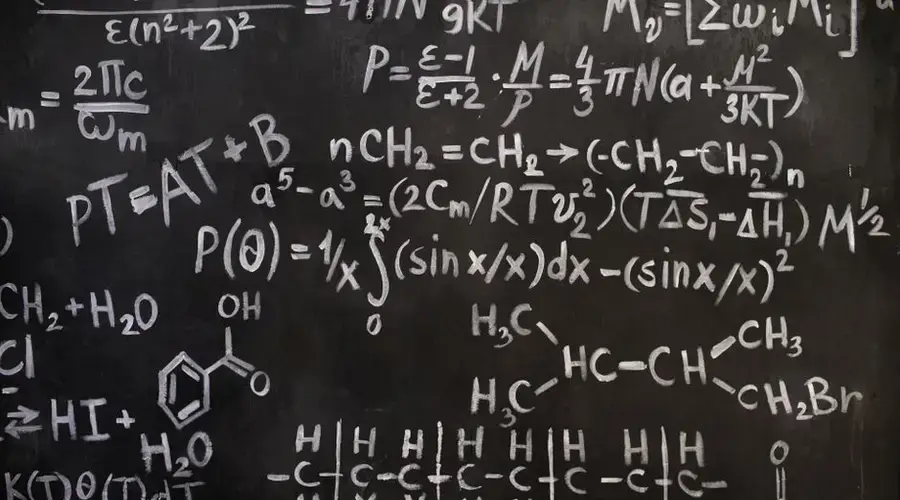 ε(n²+2)²
= 4πN
9KT
M_v = [Σω_i M_i]
P = ε-1/ε+2 · M/ρ = 4/3 πN(a + M²/3KT)
m = 2πc/ω_m
nCH₂ = CH₂ → (-CH₂-CH₂-)n
PT = AT + B
a⁵ - a³ = (2C_m/RT v₂²)(TΔS₁ - ΔH₁) M^1/2
)
P(θ) = 1/x ∫₀^2x (sin x/x)dx - (sin x/x)²
CH₂ + H₂O
OH
O
H₃C
CH₃
Cl
HC-CH
H₃C
CH₂Br
⇄ HI +
H₂O
H H H H H H H H
-C-C-C-C-C-C-C-C-
O
K(T)θ(T)dT